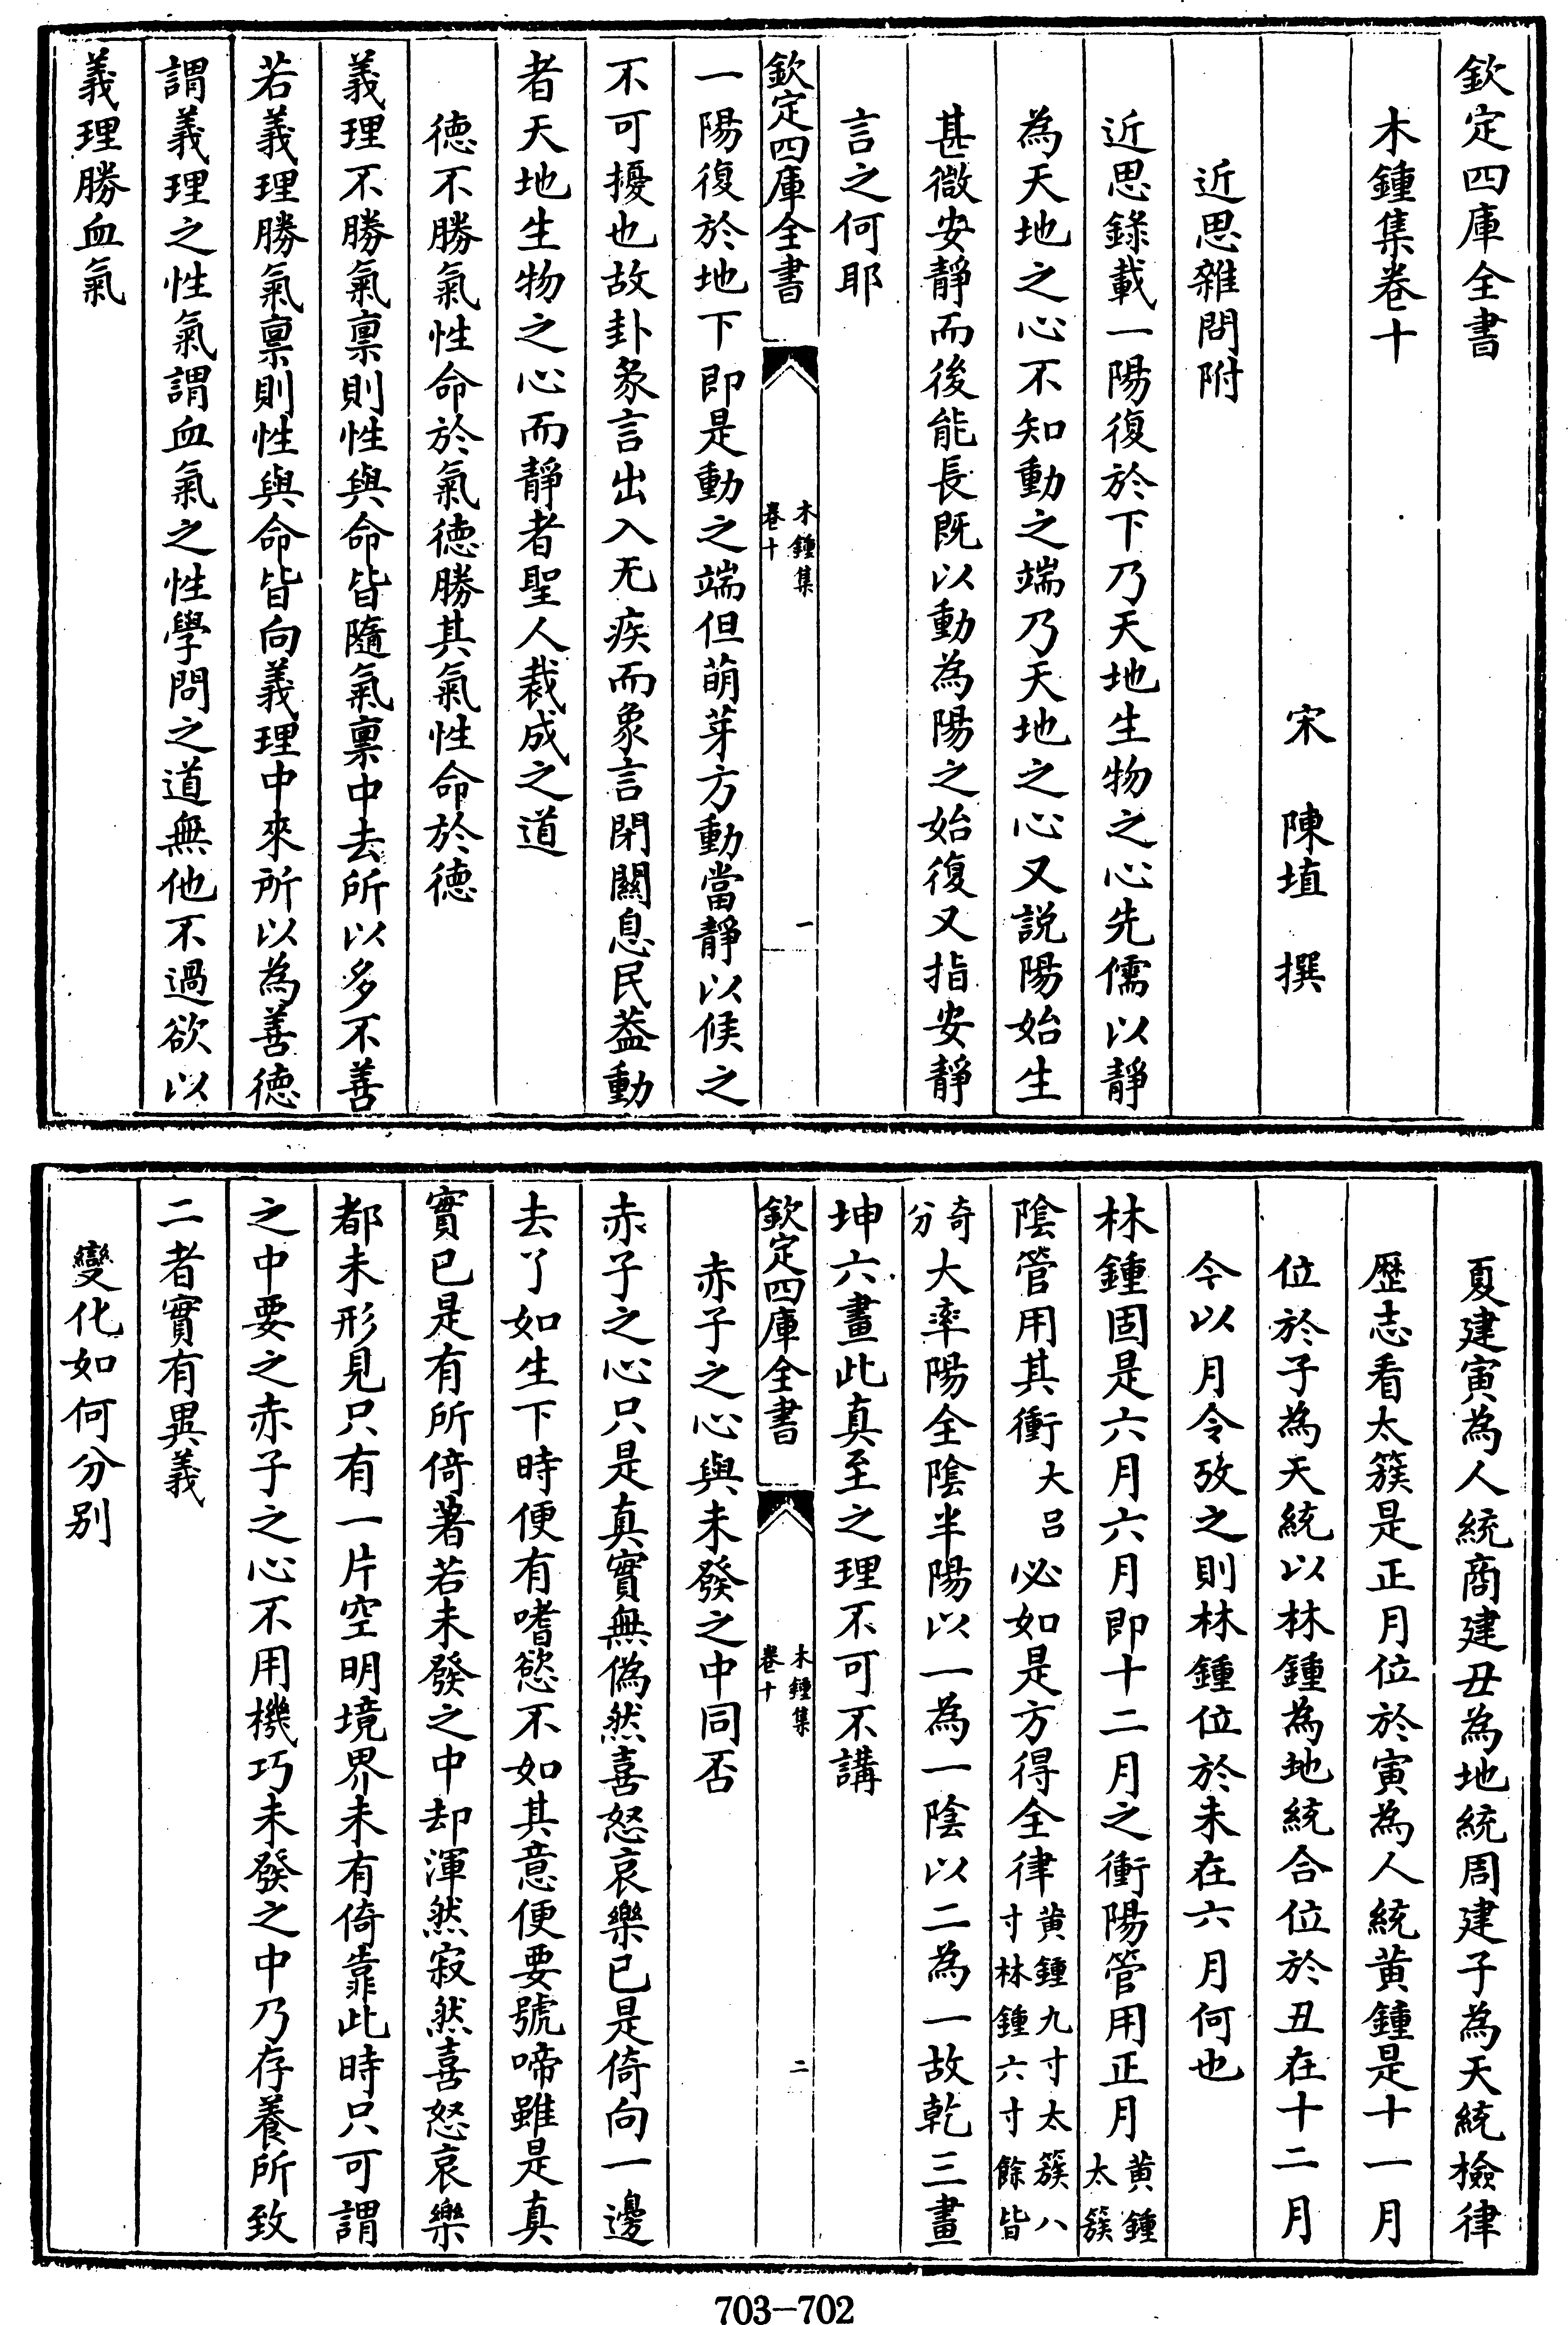 欽定四庫全書
木鍾集卷十
宋 陳埴 撰
近思雜問附
近思錄載一陽復於下乃天地生物之心先儒以靜
為天地之心不知動之端乃天地之心又説陽始生
甚微安靜而後能長既以動為陽之始復又指安靜
言之何耶
欽定四庫全書
木鍾集
卷十
一
一陽復於地下即是動之端但萌芽方動當靜以候之
不可擾也故卦彖言出入无疾而象言閉關息民葢動
者天地生物之心而靜者聖人裁成之道
德不勝氣性命於氣德勝其氣性命於德
義理不勝氣禀則性與命皆隨氣稟中去所以多不善
若義理勝氣禀則性與命皆向義理中來所以為善德
謂義理之性氣謂血氣之性學問之道無他不過欲以
義理勝血氣
夏建寅為人統商建丑為地統周建子為天統檢律
歷志看太簇是正月位於寅為人統黄鍾是十一月
位於子為天統以林鍾為地統合位於丑在十二月
今以月令攷之則林鍾位於未在六月何也
林鍾固是六月六月即十二月之衝陽管用正月黄鍾
太簇
陰管用其衝大吕必如是方得全律黄鍾九寸太簇八
寸林鍾六寸餘皆
奇
分大率陽全陰半陽以一為一陰以二為一故乾三畫
坤六畫此真至之理不可不講
欽定四庫全書
木鍾集
卷十
二
赤子之心與未發之中同否
赤子之心只是真實無偽然喜怒哀樂已是倚向一邊
去了如生下時便有嗜慾不如其意便要號啼雖是真
實已是有所倚著若未發之中却渾然寂然喜怒哀樂
都未形見只有一片空明境界未有倚靠此時只可謂
之中要之赤子之心不用機巧未發之中乃存養所致
二者實有異義
變化如何分別
703-702